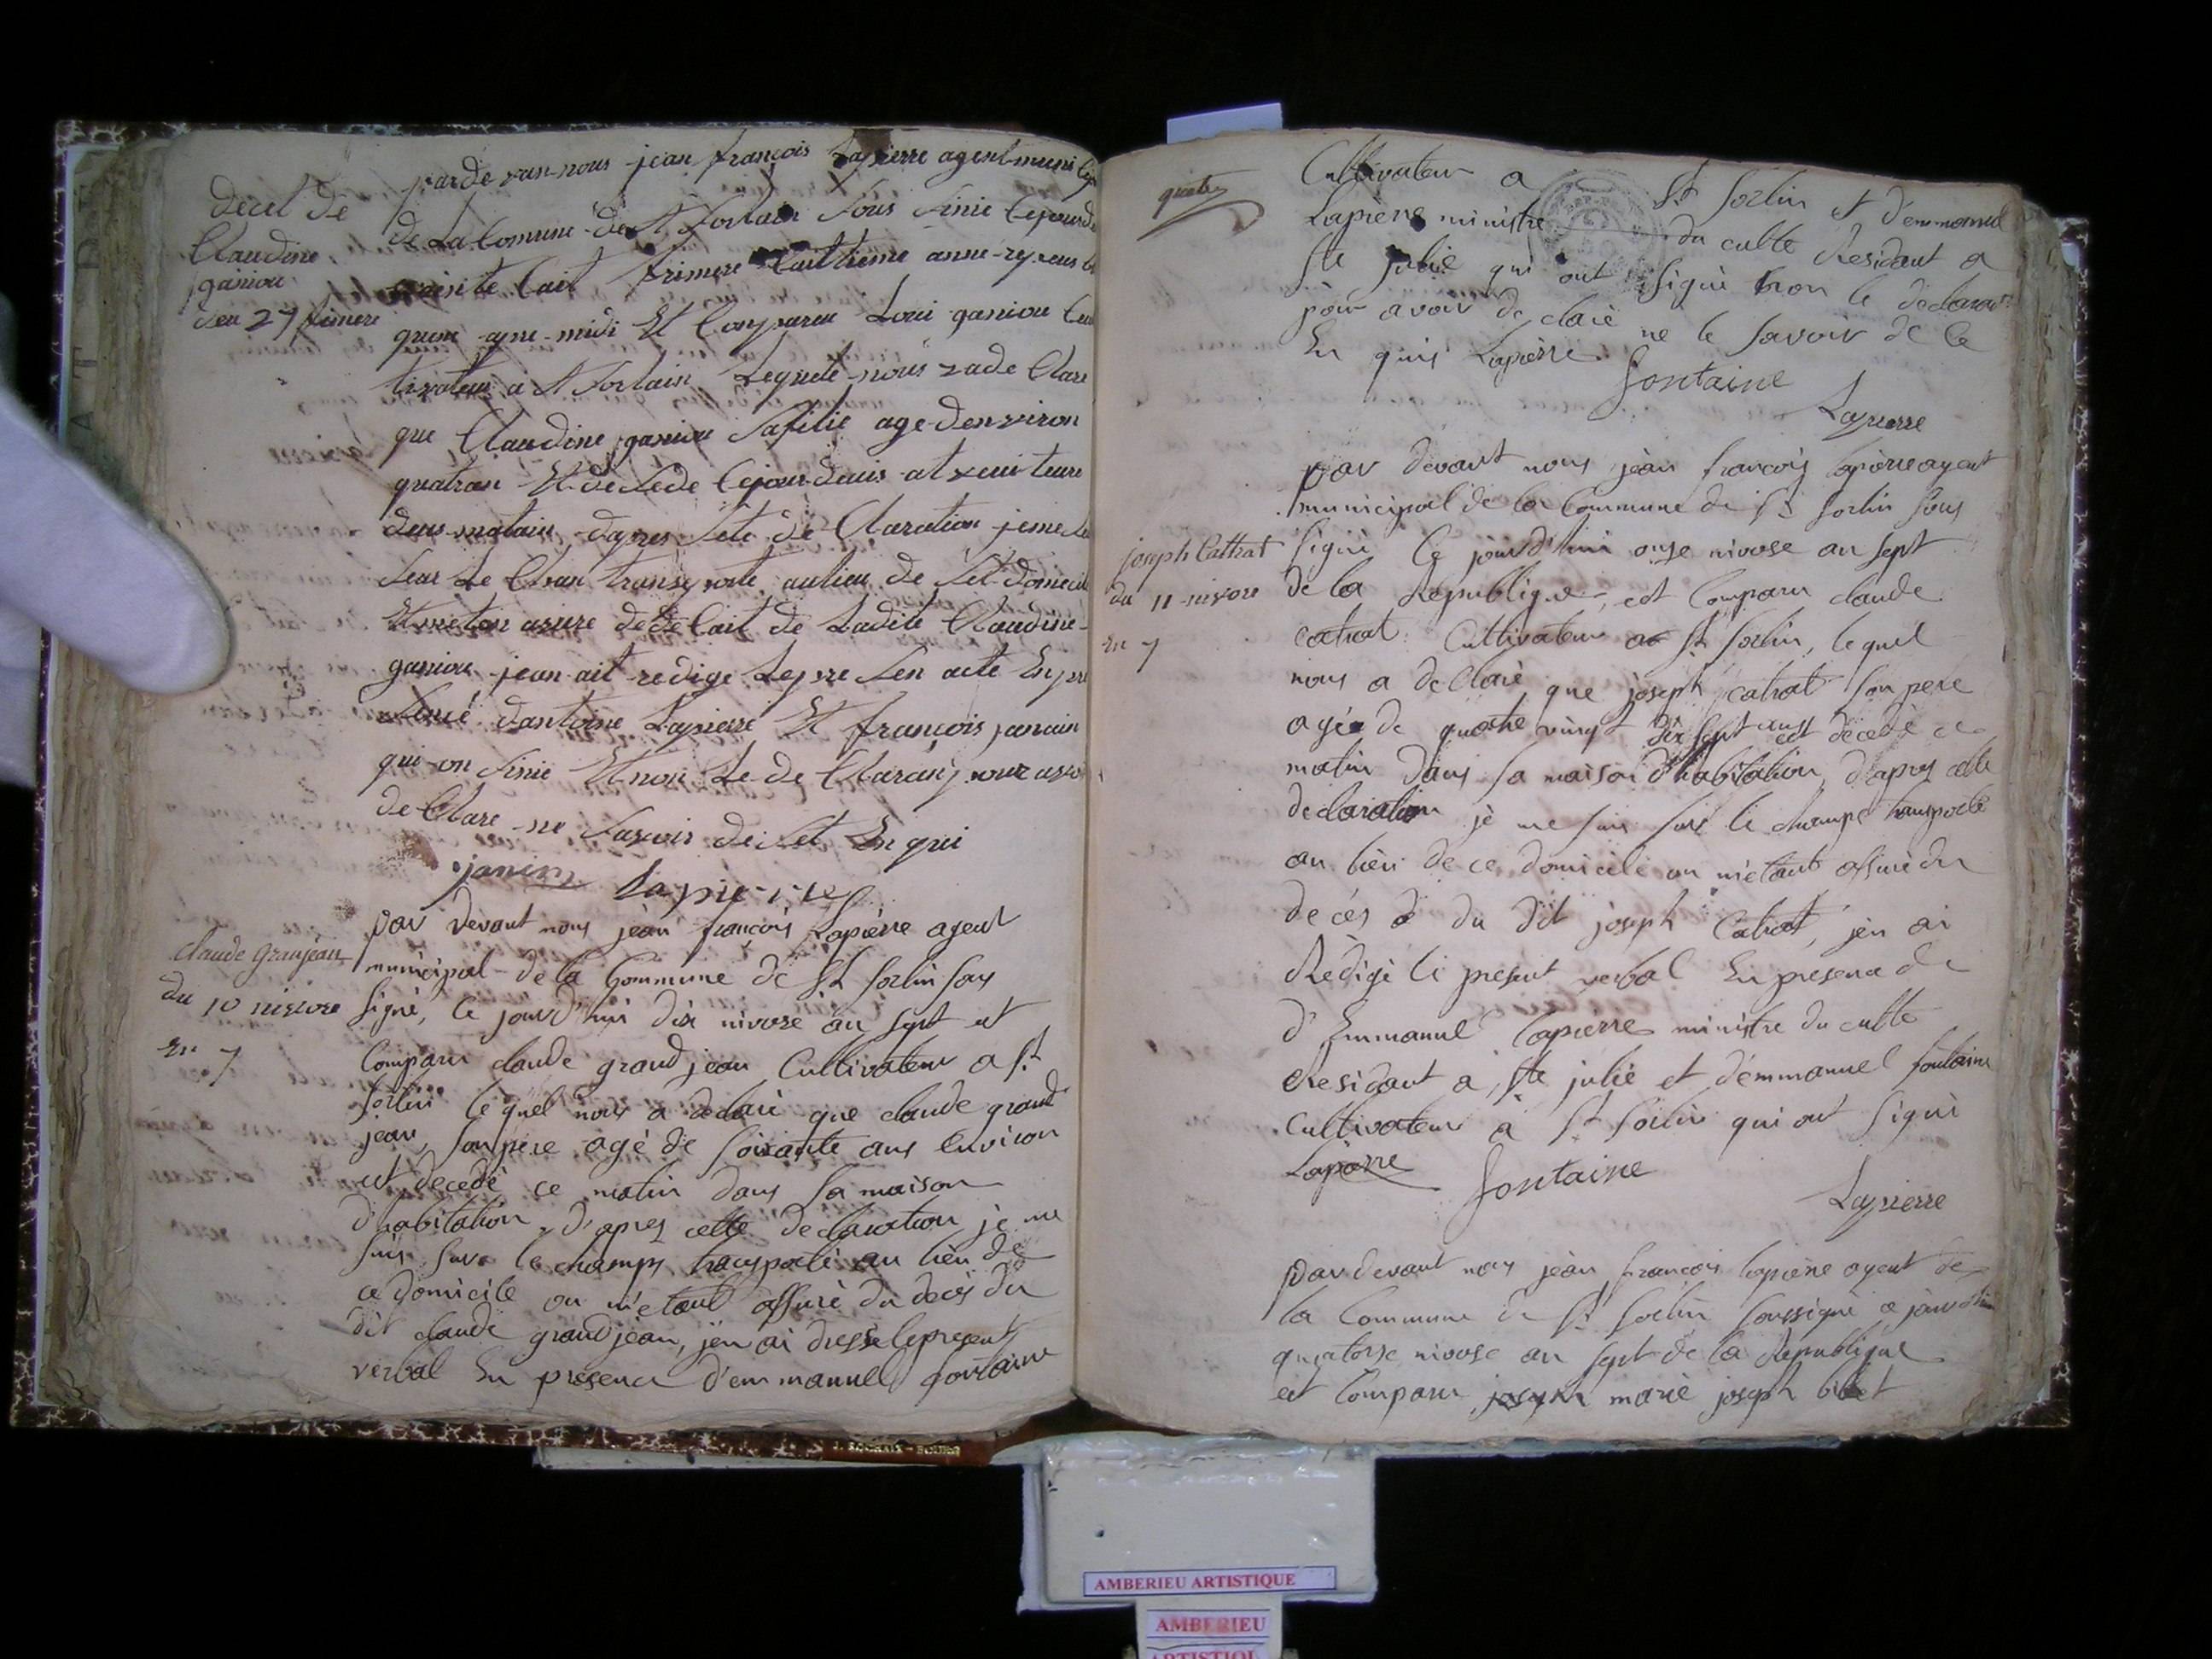 decet de
Claudine
ganiou
deu 27 frimere
parde van nous jean françois Lapierre agent muni
de La Comune de St Sorlain Sous Sinie
frimere anne
apre midi Et Comparu Loui ganiou
tivateur a St Sorlain Lequele nous
que Claudine ganiou Safilie age denviron
quatran Et de Sede
deus matain dapres Sete de Claration jeme
Seur Le Chan transporte aulieu de Set domicil
Et me ton asure de de Cait de Ladite Claudine
ganiou jean ait redige Lepre Sen acte En pre
dantoine Lapierre Et françois janain
qui on Sinie Et non Le de Claran pour avoi
de Clare ne Savoir de Set En qui
janin Lapierre
Claude Granjean
du 10 nivose
En 7
par devant nous jean françois Lapierre agent
municipal de la Commune de St Sorlin sous
signé, Ce jourd'hui dix nivose an sept est
Comparu claude grand jean Cultivateur a St
Sorlin lequel nous a declaré que claude grand
jean, son père agé de soixante ans Environ
est decedé ce matin dans sa maison
d'habitation, d'apres cette declaration je me
suis sur le champs transporté au lieu de
ce domicile ou m'etant assuré du decès du
dit claude grand jean, j'en ai dressé le present
verbal En presence d'emmanuel fontaine
Cultivateur a St Sorlin et d'emmanuel
Lapierre ministre du culte Residant a
Ste Julie qui ont signé non le declarant
pour avoir declaré ne le savoir de ce
En quis Lapierre
fontaine
Lapierre
joseph Cattrat
du 11 nivose
En 7
par devant nous jean françois lapierre agent
municipal de la Commune de St Sorlin sous
signé Ce jourd'hui onze nivose an sept
de la Republique, est Comparu claude
catrat Cultivateur a St Sorlin, lequel
nous a declaré que joseph catrat son pere
agé de quatre vingt dix sept ans est decedé ce
matin dans sa maison d'habitation, d'apres cette
declaration je me suis sur le champs transporté
au lieu de ce domicile ou m'etant assuré du
decés du dit joseph Catrat, j'en ai
Redigé le present verbal En presence de
d'Emmanuel lapierre ministre du culte
Residant a Ste julie et d'emmanuel fontaine
Cultivateur a St Sorlin qui ont signé
Lapierre fontaine
Lapierre
par devant nous jean françois lapierre agent de
la Commune de St Sorlin soussigné ce jourd'hui
quatorse nivose an sept de la Republique
est Comparu joseph marie joseph
AMBERIEU ARTISTIQUE
AMBERIEU
ARTISTIQU